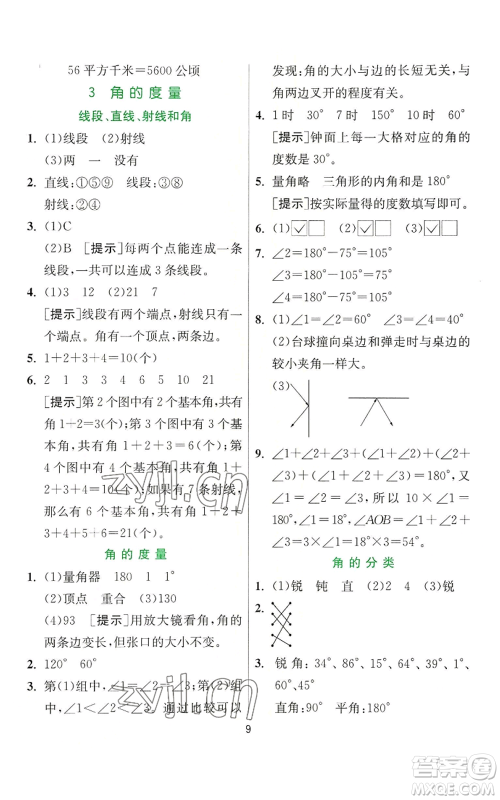 56 平方千米＝5600 公顷
3 角的度量
线段、直线、射线和角
1. (1)线段 (2)射线
(3)两 一 没有
2. 直线：①⑤⑨ 线段：③⑧
射线：②④
3. (1)C
(2)B [提示]每两个点能连成一条
线段，一共可以连成 3 条线段。
4. (1)3 12 (2)21 7
[提示]线段有两个端点，射线有一
个端点。角有一个顶点，两条边。
5. 1+2+3+4=10(个)
6. 2 1 3 3 4 6 5 10 21
[提示]第 2 个图中有 2 个基本角，共有
角 1+2=3(个)；第 3 个图中有 3 个基
本角，共有角 1+2+3=6(个)；第 4
个图中有 4 个基本角，共有角 1+
2+3+4=10(个)。如果有 7 条射线，
那么有 6 个基本角，共有角 1+2+
3+4+5+6=21(个)。
角的度量
1. (1)量角器 180 1 1°
(2)顶点 重合 (3)150
(4)93 [提示]用放大镜看角，角的
的两条边变长，但张口的大小不变。
2. 120° 60°
3. 第(1)组中，∠1=∠2=∠3；第(2)组
中，∠1<∠2<∠3。通过比较可以
发现：角的大小与边的长短无关，与
角两边叉开的程度有关。
4. 1 时 30° 60° 3 时 120°
[提示]钟面上一大格对应的角的
度数是 30°。
5. 量角略 三角形的内角和是 180°
[提示]按实际量得的度数填写即可。
6. (1)☑☐ (2)☐☑ (3)☑☐
7. ∠2=180°-75°=105°
∠3=180°-105°=75°
∠4=180°-75°=105°
8. (1)∠1=∠2 ∠1=∠2
(2)台球撞向桌边和弹走时与桌边
的较小夹角一样大。
(3)
9. ∠1+∠2+∠3=∠1+(∠1+∠1)+
∠3=∠1+(∠1+∠1)+(∠1+
∠2)+(∠1+∠2)=180°，又因为
∠2=∠1+∠1，所以 10×∠1=
180°，∠1=18°，∠AOB=∠1+
∠1+∠1=18°×3=54°
角的分类
1. (1)锐 钝 直 (2)2 4 (3)锐
2.
3. 锐角：34°、86°、74°、13°、27°、
60°、45°
直角：90° 平角：180°
9
zyjl.cn
zyjl.cn
作业精灵
答案圈
MXQE.COM